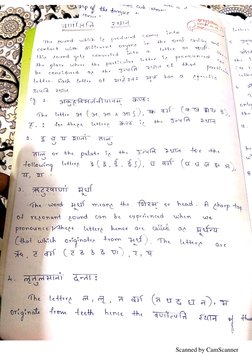 वर्णोत्पत्ति स्थान
The sound which is produced comes into
contact with different organs in the oral cavity and
the sound gets converted into a letter or वर्ण.
the place where the particular letter is pronounced
be considered as the उत्पत्ति स्थान of that
letter. Each letter of संस्कृत has a specific
उत्पत्ति स्थान
१. अकुहविसर्जनीयानाम् कण्ठः
The letters अ (अ, आ, अ३), क वर्ग (क ख ग घ ङ),
ह, : for these letters कण्ठ is the उत्पत्ति स्थान
२. इ चु य शानां तालु
तालु or the palate is the उत्पत्ति स्थान for the
following letters इ (इ, ई, इ३), च वर्ग (च छ ज झ ञ),
य, श
३. ऋटुरषाणां मूर्धा
The word मूर्धा means the शिरस् or head. A sharp tap
of resonant sound can be experienced when we
pronounce these letters hence are called as मूर्धन्य
(that which originates from मूर्धा). The letters are
ऋ, ट वर्ग (ट ठ ड ढ ण), र, ष
४. लृतुलसानां दन्ताः
The letters ल, लृ, त वर्ग (त थ द ध न), स
originate from teeth hence the वर्णोत्पत्ति स्थान of the
Scanned by CamScanner